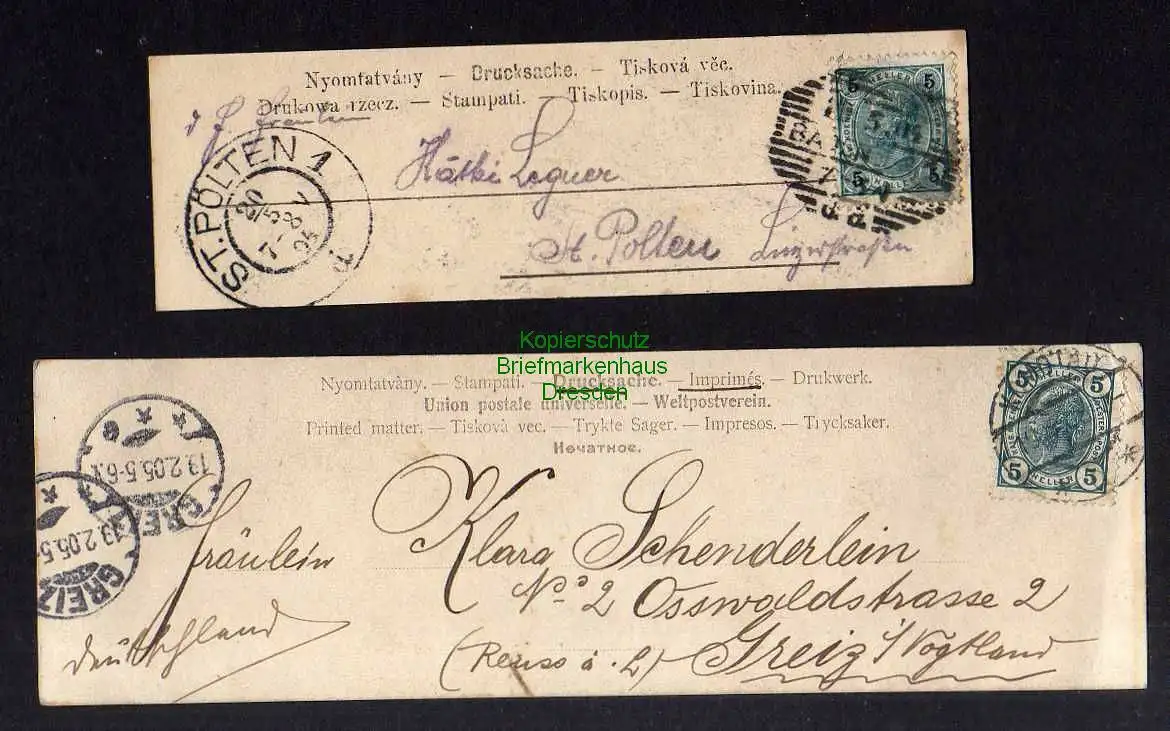 Nyomtatvány — Drucksache. — Tisková věc.
Drukowa rzecz. — Stampati. — Tiskopis. — Tiskovina.
Fräulein
ST. PÖLTEN 1
5 HELLER 5
5 5
St. Pölten Linzerstraßen
Kopierschutz
Briefmarkenhaus
Dresden
Nyomtatvàny. — Stampati. — Drucksache. — Imprimés. — Drukwerk.
Union postale universelle. — Weltpostverein.
Printed matter. — Tiskovà vec. — Trykte Sager. — Impresos. — Trycksaker.
Печатное.
5 5
5 HELLER 5
13.2.05.5-6
GREIZ
13.2.05.5-
GREIZ
Fräulein Klara Schenderlein
No 2 Osswaldstrasse 2
Deutschland
(Reuss ä. L) Greiz i/Vogtland